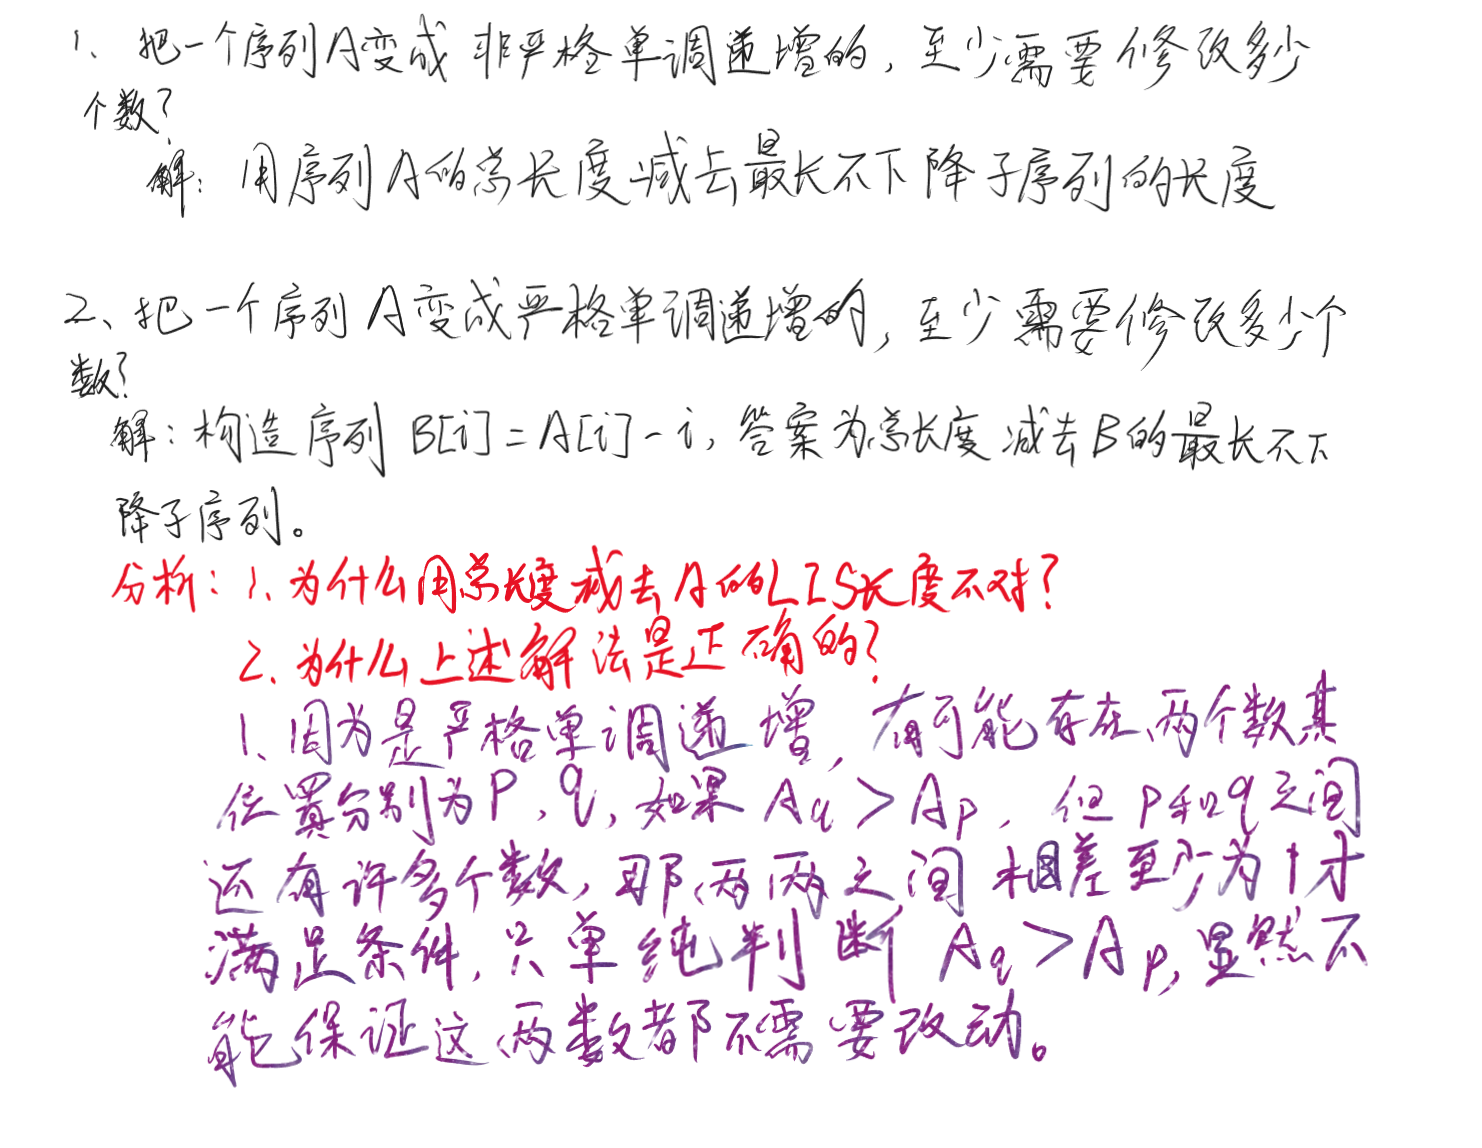 1、把一个序列A变成非严格单调递增的,至少需要修改多少
个数?
解:用序列A的总长度减去最长不下降子序列的长度
2、把一个序列A变成严格单调递增的,至少需要修改多少个
数?
解:构造序列B[i]=A[i]-i,答案为总长度减去B的最长不下
降子序列。
分析:1.为什么用总长度减去A的LIS长度不对?
2.为什么上述解法是正确的?
1、因为是严格单调递增,有可能存在两个数其
位置分别为P,q,如果Aq>Ap,但P和q之间
还有许多个数,那两两之间相差至少为1才
满足条件,只单纯判断Aq>Ap,显然不
能保证这两数都不需要改动。